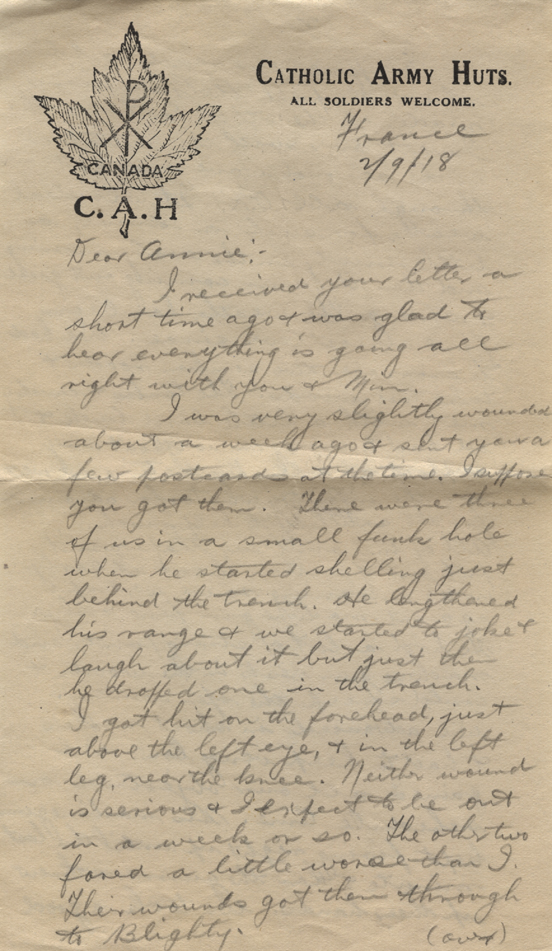 CATHOLIC ARMY HUTS.
ALL SOLDIERS WELCOME.
CANADA
C.A.H
France
2/9/18
Dear Annie:-
I received your letter a
short time ago & was glad to
hear everything is going all
right with you & Min.
I was very slightly wounded
about a week ago & sent you a
few postcards at the time. I suppose
you got them. There were three
of us in a small funk hole
when he started shelling just
behind the trench. He lengthened
his range & we started to joke &
laugh about it but just then
he dropped one in the trench.
I got hit on the forehead, just
above the left eye, & in the left
leg, near the knee. Neither wound
is serious & I expect to be out
in a week or so. The other two
fared a little worse than I.
Their wounds got them through
to Blighty.
(over)